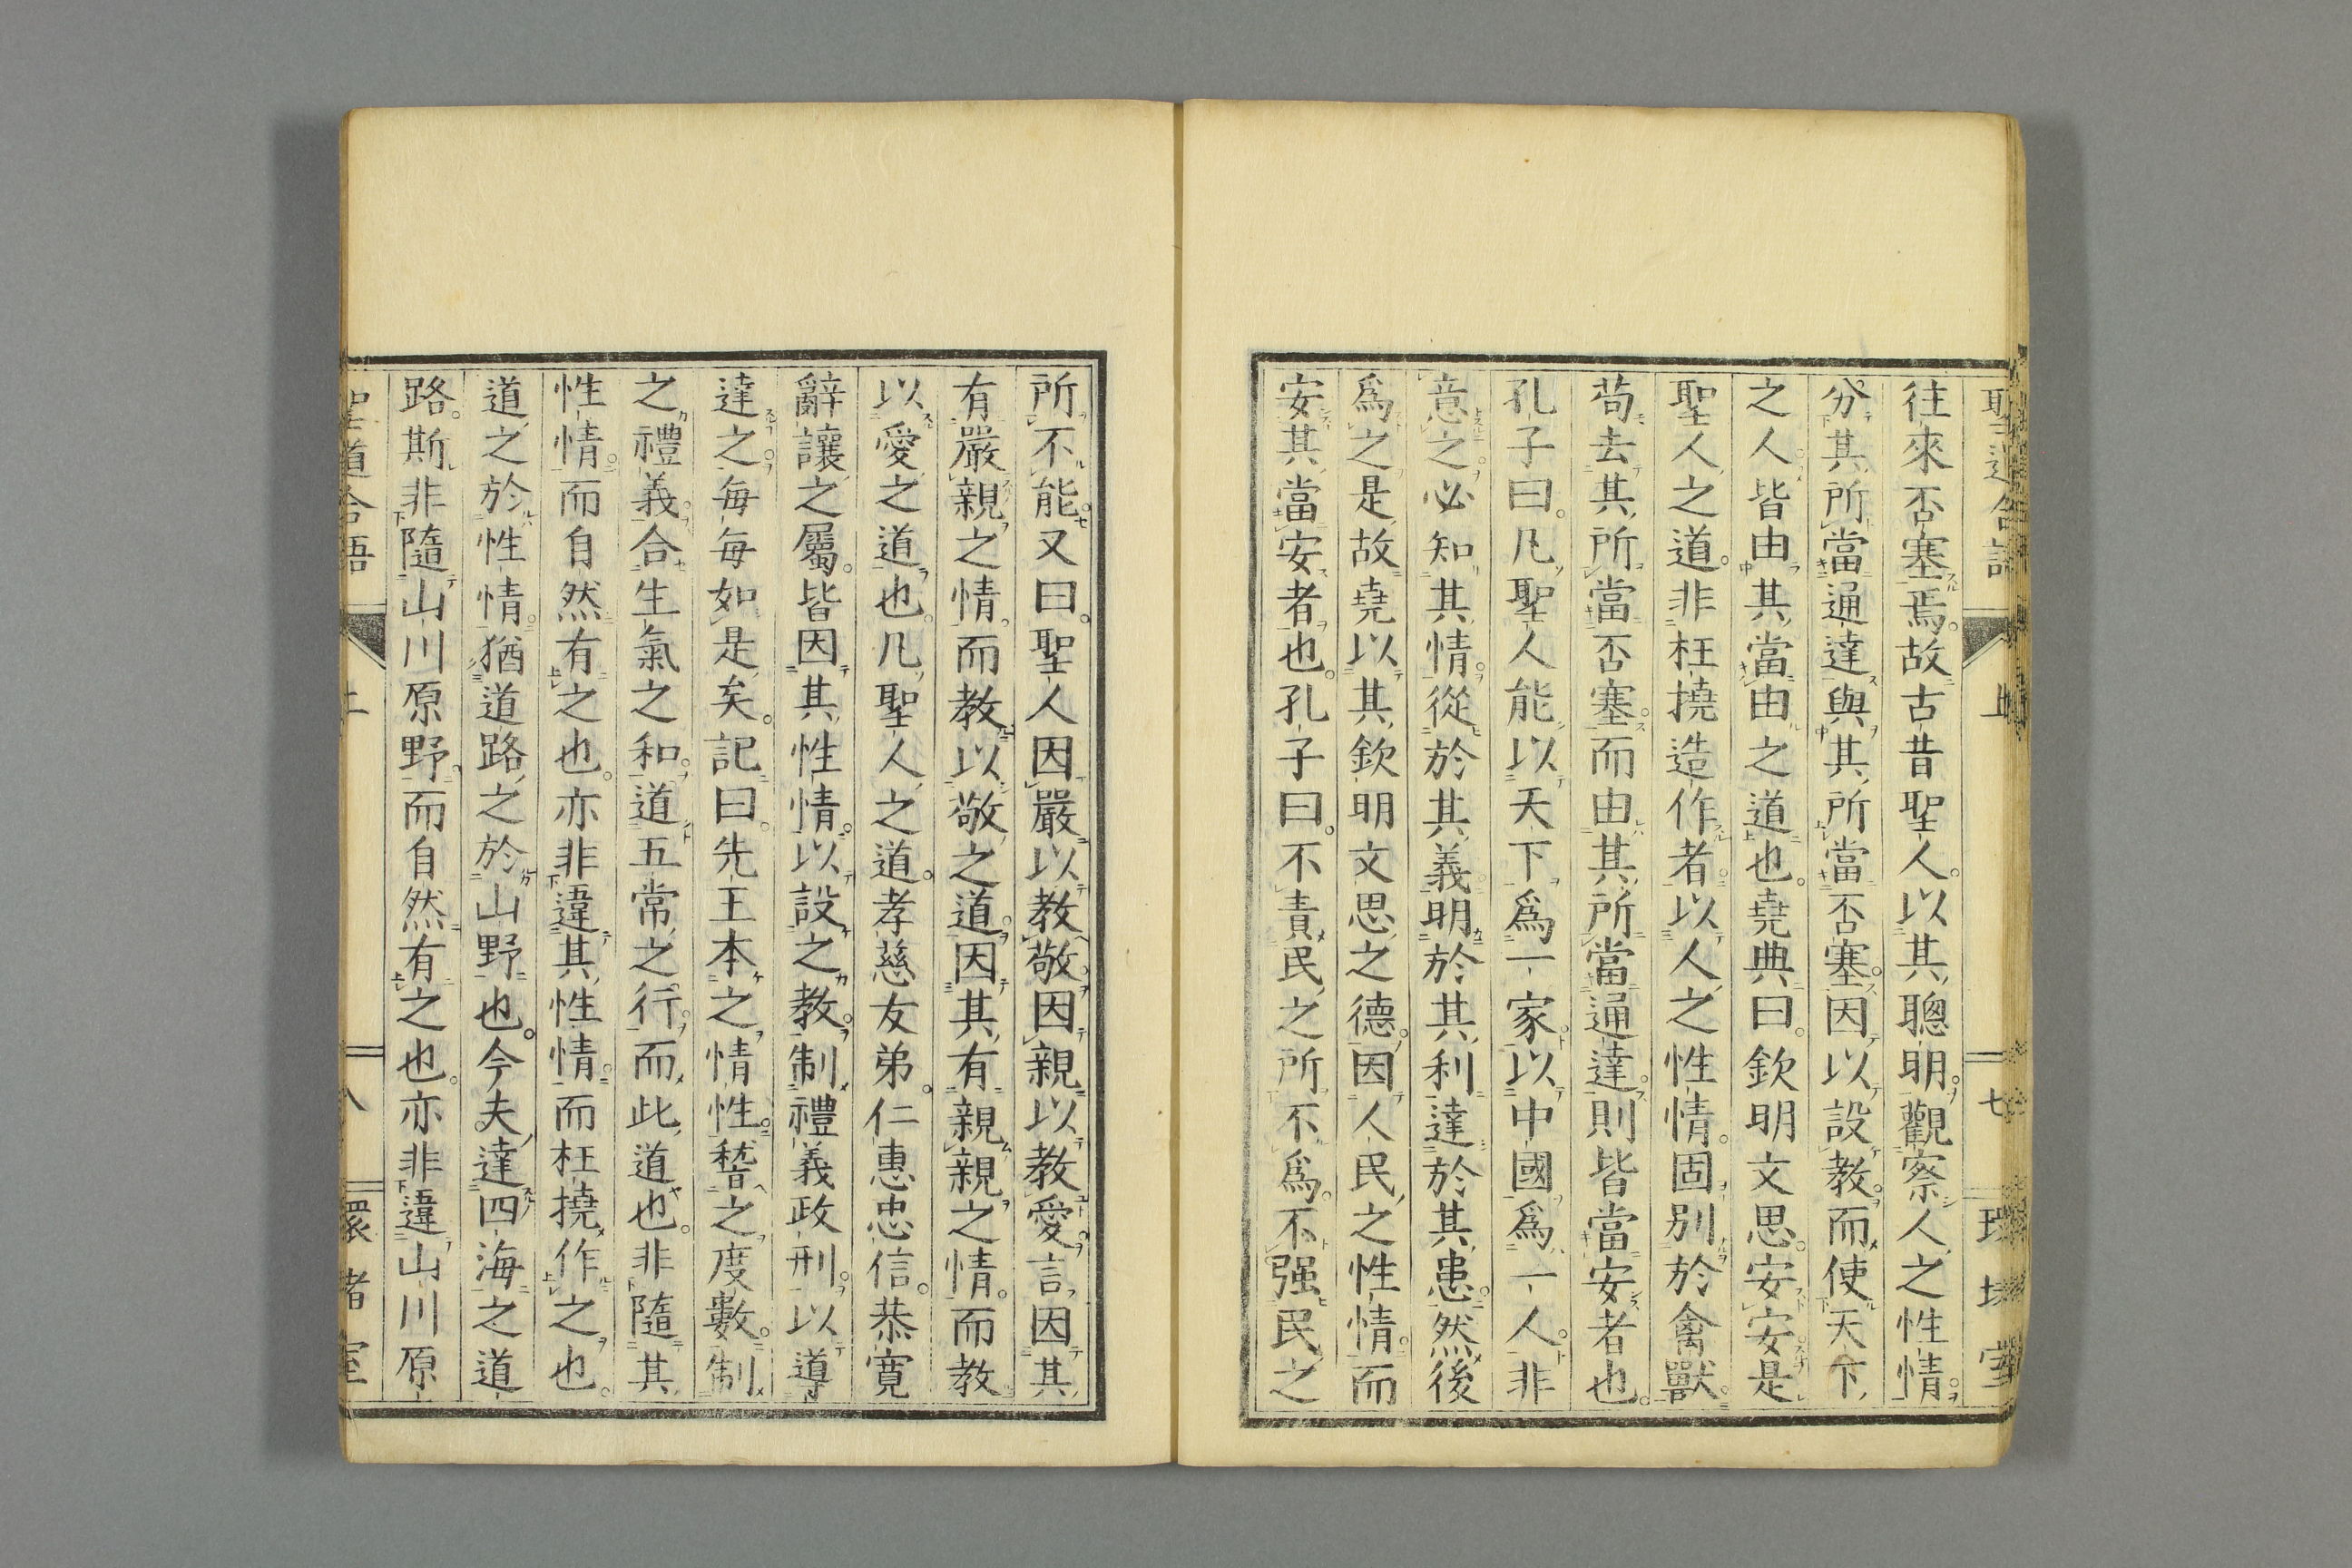 往來否塞焉。故古昔聖人。以其聰明。觀察人之性情。
分其所當通達與其所當否塞。因以設教。而使天下
之人皆由其當由之道也。堯典曰。欽明文思。安安是
聖人之道。非枉撓造作者。以人之性情。固別於禽獸。
苟去其所當否塞。而由其所當通達。則皆當安者也。
孔子曰。凡聖人能以天下爲一家。以中國爲一人。非
意之。必知其情。從於其義。明於其利。達於其患。然後
爲之。是故堯以其欽明文思之德。因人民之性情。而
安其當安者也。孔子曰。不責民之所不爲。不强民之
所不能。又曰。聖人因嚴以教敬。因親以教愛。言因其
有嚴親之情。而教以敬之道。因其有親親之情。而教
以愛之道也。凡聖人之道。孝慈友弟。仁惠忠信。恭寬
辭讓之屬。皆因其性情。以設之教。制禮義政刑。以導
達之。每每如是矣。記曰。先王本之情性。稽之度數。制
之禮義。合生氣之和。道五常之行。而此道也。非隨其
性情。而自然有之也。亦非違其性情。而枉撓作之也。
道之於性情。猶道路之於山野也。今夫達四海之道
路。斯非隨山川原野。而自然有之也。亦非違山川原
聖道合語
上
七
聖道合語
上
八
環堵室